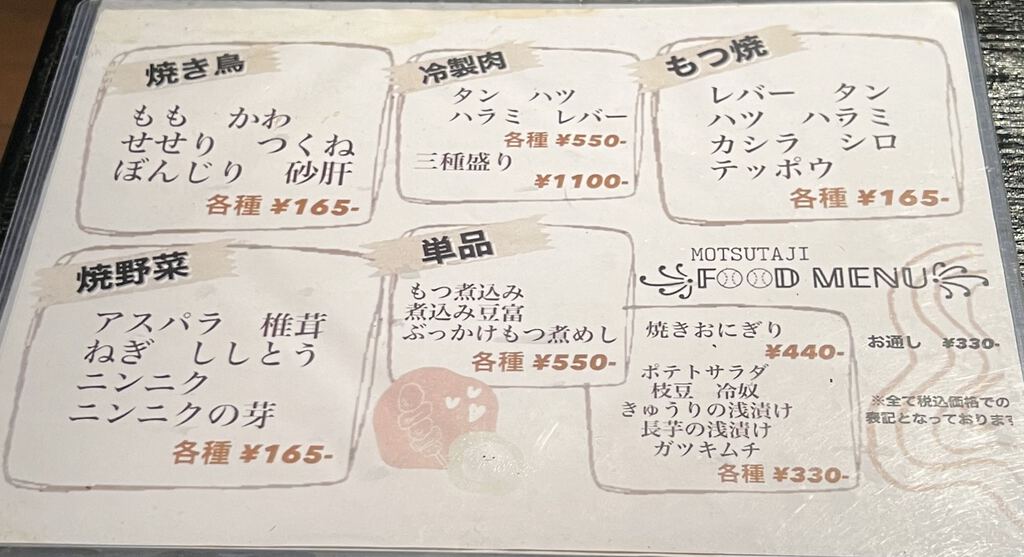 焼き鳥
もも かわ
せせり つくね
ぼんじり 砂肝
各種 ¥165-
冷製肉
タン ハツ
ハラミ レバー
各種 ¥550-
三種盛り
¥1100-
もつ焼
レバー タン
ハツ ハラミ
カシラ シロ
テッポウ
各種 ¥165-
焼野菜
アスパラ 椎茸
ねぎ ししとう
ニンニク
ニンニクの芽
各種 ¥165-
単品
もつ煮込み
煮込み豆富
ぶっかけもつ煮めし
各種 ¥550-
MOTSUTAJI
FOOD MENU
焼きおにぎり
¥440-
ポテトサラダ
枝豆 冷奴
きゅうりの浅漬け
長芋の浅漬け
ガツキムチ
各種 ¥330-
お通し ¥330-
※全て税込価格での
表記となっております